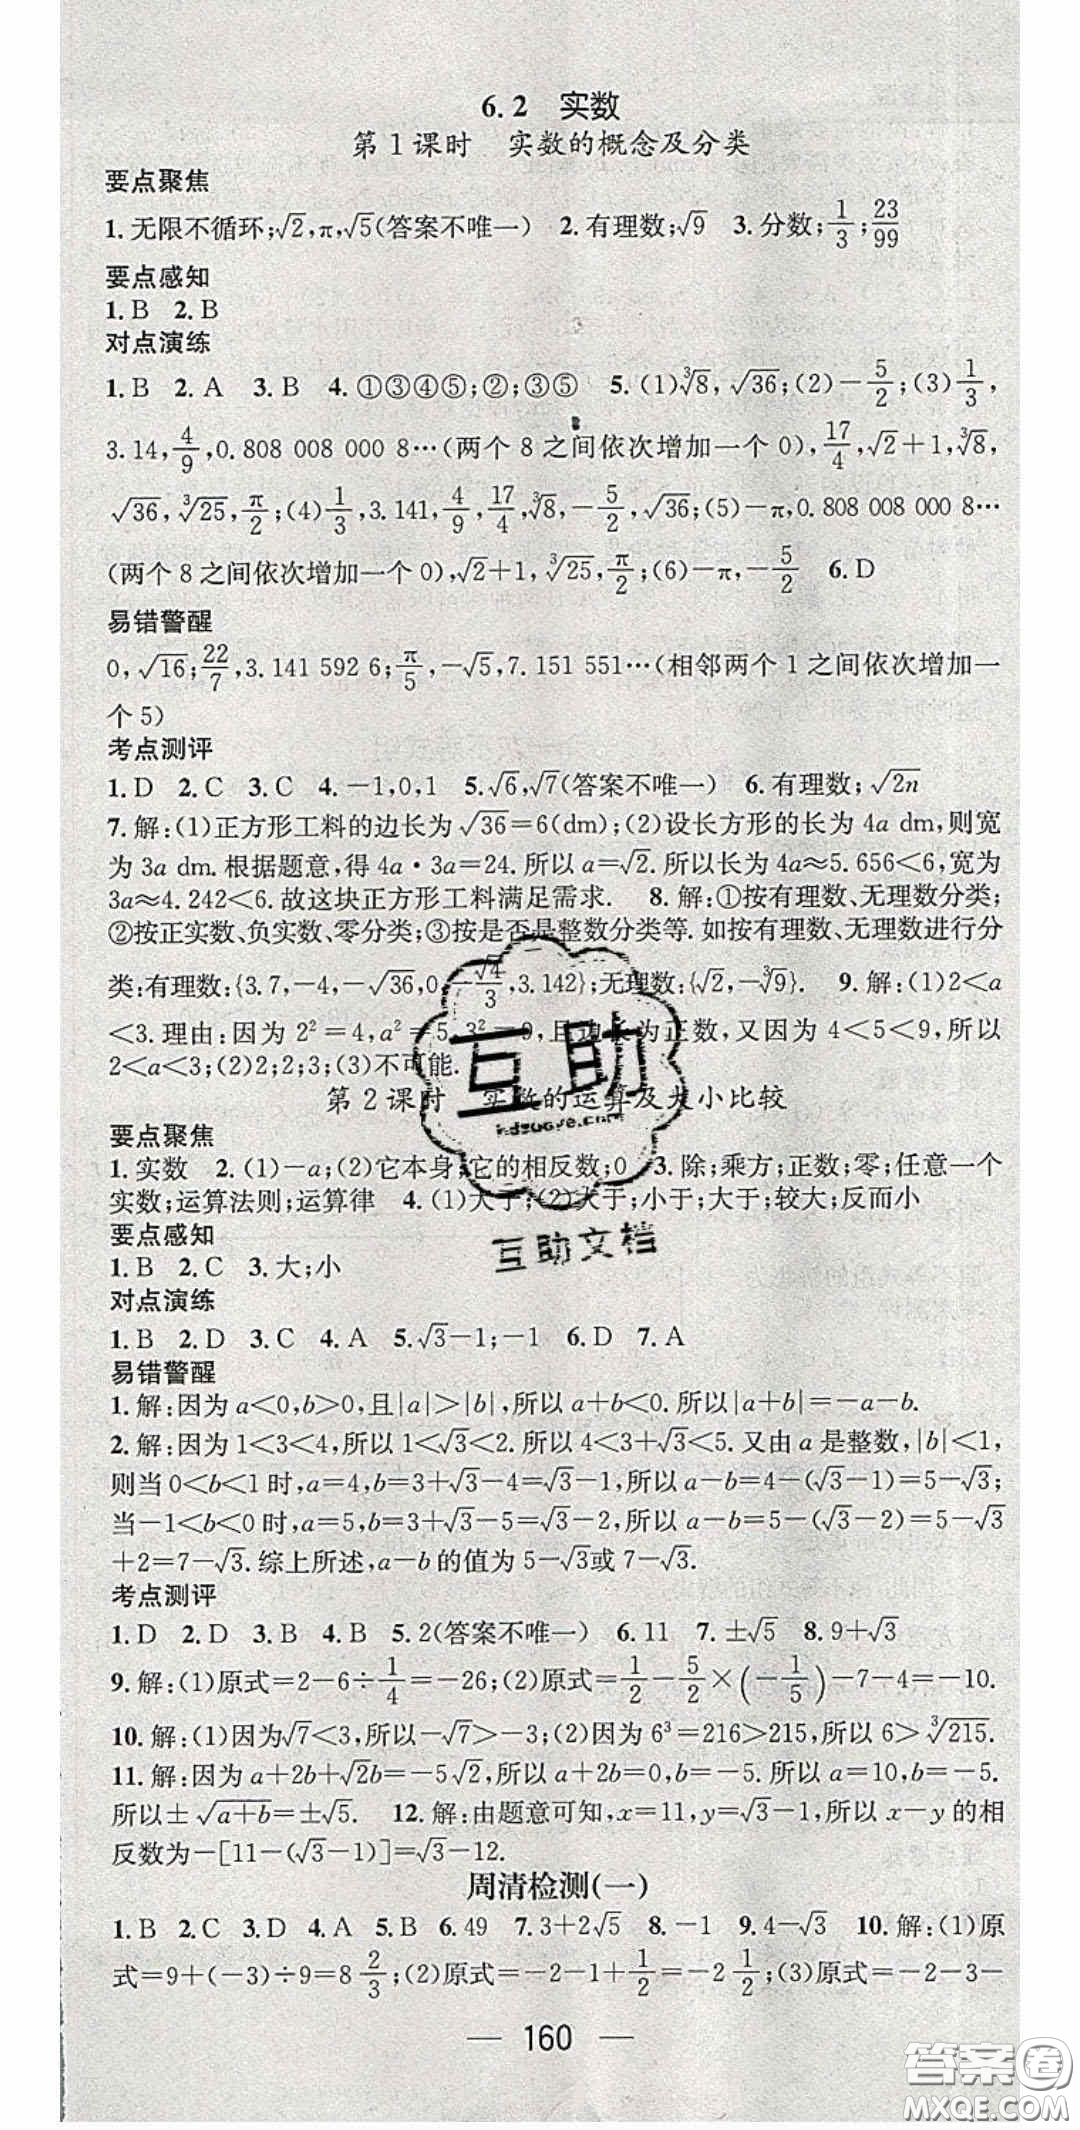 6.2 实数
第1课时 实数的概念及分类
要点聚焦
1.无限不循环;√2,π,√5(答案不唯一) 2.有理数;√9 3.分数;1/3;23/99
要点感知
1.B 2.B
对点演练
1.B 2.A 3.B 4.①③④⑤;②;③⑤ 5.(1)∛8,√36;(2)−5/2;(3)1/3,
3.14,4/9,0.808 008 000 8…(两个8之间依次增加一个0),17/4,√2+1,∛8,
√36,∛25,π/2;(4)1/3,3.141,4/9,17/4,∛8,−5/2,√36;(5)−π,0.808 008 000 8…
(两个8之间依次增加一个0),√2+1,∛25,π/2;(6)−π,−5/2 6.D
易错警醒
0,√16;22/7,3.141 592 6;π/5,−√5,7.151 551…(相邻两个1之间依次增加一
个5)
考点测评
1.D 2.C 3.C 4.−1,0,1 5.√6,√7(答案不唯一) 6.有理数;√2n
7.解:(1)正方形工料的边长为√36=6(dm);(2)设长方形的长为4a dm,则宽
为3a dm.根据题意,得4a·3a=24.所以a=√2.所以长为4a≈5.656<6,宽为
3a≈4.242<6.故这块正方形工料满足需求. 8.解:①按有理数、无理数分类;
②按正实数、负实数、零分类;③按是否是整数分类等.如按有理数、无理数进行分
类:有理数:{3.7,−4,−√36,0,−√4/3,3.142};无理数:{√2,−∛9}. 9.解:(1)2<a
<3.理由:因为2²=4,a²=5,3²=9,且边长为正数,又因为4<5<9,所以
2<a<3;(2)2;2;3;(3)不可能.
第2课时 实数的运算及大小比较
要点聚焦
1.实数 2.(1)−a;(2)它本身;它的相反数;0 3.除;乘方;正数;零;任意一个
实数;运算法则;运算律 4.(1)大于;(2)大于;小于;大于;较大;反而小
要点感知
1.B 2.C 3.大;小
对点演练
1.B 2.D 3.C 4.A 5.√3−1;−1 6.D 7.A
易错警醒
1.解:因为a<0,b>0,且|a|>|b|,所以a+b<0.所以|a+b|=−a−b.
2.解:因为1<3<4,所以1<√3<2.所以4<3+√3<5.又由a是整数,|b|<1,
则当0<b<1时,a=4,b=3+√3−4=√3−1,所以a−b=4−(√3−1)=5−√3;
当−1<b<0时,a=5,b=3+√3−5=√3−2,所以a−b=5−(√3−2)=5−√3
+2=7−√3.综上所述,a−b的值为5−√3或7−√3.
考点测评
1.D 2.D 3.B 4.B 5.2(答案不唯一) 6.11 7.±√5 8.9+√3
9.解:(1)原式=2−6÷1/4=−26;(2)原式=1/2−5/2×(−1/5)−7−4=−10.
10.解:(1)因为√7<3,所以−√7>−3;(2)因为6³=216>215,所以6>∛215.
11.解:因为a+2b+√2b=−5√2,所以a+2b=0,b=−5.所以a=10,b=−5.
所以±√a+b=±√5. 12.解:由题意可知,x=11,y=√3−1,所以x−y的相
反数为−[11−(√3−1)]=√3−12.
周清检测(一)
1.B 2.C 3.D 4.A 5.B 6.49 7.3+2√5 8.−1 9.4−√3 10.解:(1)原
式=9+(−3)÷9=8 2/3;(2)原式=−2−1+1/2=−2 1/2;(3)原式=−2−3−
— 160 —
互助
互助文档
答案圈
MXQE.COM